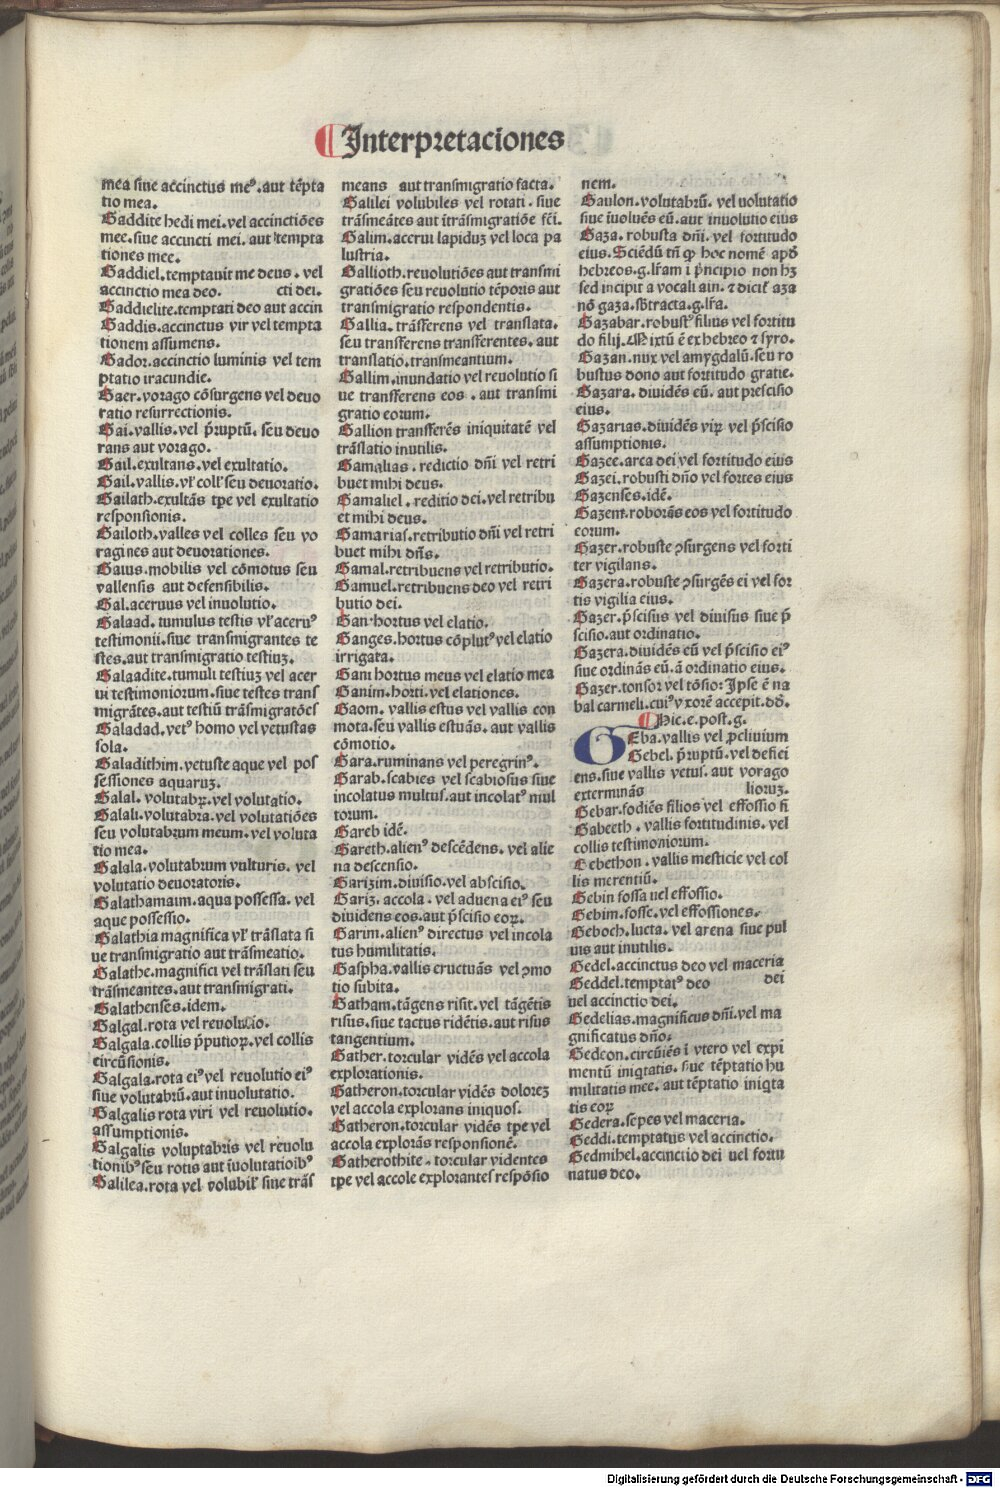 Interpretaciones
mea siue accinctus meꝰ.aut tẽpta
tio mea.
Gaddite hedi mei.vel accinctiões
mee.siue accincti mei.aut tempta
tiones mee.
Gaddiel.temptauit me deus.vel
accinctio mea deo. cti dei.
Gaddielite.temptati deo aut accin
Gaddis.accinctus vir vel tempta
tionem assumens.
Gador.accinctio luminis vel tem
ptatio iracundie.
Gaer.vorago cõsurgens vel deuo
ratio resurrectionis.
Gai.vallis.vel p̃ruptũ.seu deuo
rans aut vorago.
Gail.exultans.vel exultatio.
Gail.vallis.vl̕ coll̕ seu deuoratio.
Gailath.exultãs tpe vel exultatio
responsionis.
Gailoth.valles vel colles seu vo
ragines aut deuorationes.
Gaius.mobilis vel cõmotus seu
vallensis aut defensibilis.
Gal.aceruus vel inuolutio.
Galaad.tumulus testis vl̕ aceruꝰ
testimonii.siue transmigrantes te
stes.aut transmigratio testiuȝ.
Galaadite.tumuli testiuȝ vel acer
ui testimoniorum.siue testes trans
migrãtes.aut testiũ trãsmigratões
Galadad.vetꝰ homo vel vetustas
sola.
Galadithim.vetuste aque vel pos
sessiones aquaruȝ.
Galal.volutabꝝ.vel volutatio.
Galali.volutabra.vel volutatiões
seu volutabrum meum.vel voluta
tio mea.
Galala.volutabrum vulturis.vel
volutatio deuoratoris.
Galathamaim.aqua possessa.vel
aque possessio.
Galathia magnifica vl̕ trãslata si
ue transmigratio aut trãsmeatio.
Galathe.magnifici vel trãslati seu
trãsmeantes.aut transmigrati.
Galathenses.idem.
Galgal.rota vel reuolutio.
Galgala.collis p̃putioꝝ.vel collis
circũsionis.
Galgala.rota eiꝰ vel reuolutio eiꝰ
siue volutabrũ.aut inuolutatio.
Galgalis rota viri vel reuolutio.
assumptionis.
Galgalis voluptabris vel reuolu
tionibꝰ seu rotis aut ĩuolutatioibꝰ
Galilea.rota vel volubil̕ siue trãs
means aut transmigratio facta.
Galilei volubiles vel rotati.siue
trãsmeãtes aut ĩtrãsmigratiõe fc̃i.
Galim.acerui lapiduȝ vel loca pa
lustria.
Gallioth.reuolutiões aut transmi
gratiões seu reuolutio tẽporis aut
transmigratio respondentis.
Gallia.trãsferens vel translata.
seu transferens transferentes.aut
translatio.transmeantium.
Gallim.inundatio vel reuolutio si
ue transferens eos.aut transmi
gratio eorum.
Gallion transferẽs iniquitatẽ vel
trãslatio inutilis.
Gamalias.redictio dñi vel retri
buet mihi deus.
Gamaliel.reditio dei.vel retribu
et mihi deus.
Gamarias.retributio dñi vel retri
buet mihi dñs.
Gamal.retribuens vel retributio.
Gamuel.retribuens deo vel retri
butio dei.
Gan.hortus vel elatio.
Ganges.hortus cõplutꝰ vel elatio
irrigata.
Gani hortus meus vel elatio mea
Ganim.horti.vel elationes.
Gaom.vallis estus vel vallis con
mota.seu vallis estuãs.aut vallis
cõmotio.
Gara.ruminans vel peregrinꝰ.
Garab.scabies vel scabiosus siue
incolatus multus.aut incolatꝰ mul
torum.
Gareb idẽ.
Gareth.alienꝰ descẽdens.vel alie
na descensio.
Garizim.diuisio.vel abscisio.
Gariz.accola.vel aduena eiꝰ seu
diuidens eos.aut p̃scisio eoꝝ.
Garim.alienꝰ directus vel incola
tus humilitatis.
Gaspha.vallis eructuãs vel ꝯmo
tio subita.
Gatham.tãgens risũ.vel tãgẽtis
risus.siue tactus ridẽtis.aut risus
tangentium.
Gather.torcular vidẽs vel accola
explorationis.
Gatheron.torcular vidẽs doloreȝ
vel accola explorans iniquos.
Gatheron.torcular vidẽs tpe vel
accola explorãs responsionẽ.
Gatherothite.torcular videntes
tpe vel accole explorantes respõsio
nem.
Gaulon.volutabrũ.vel uolutatio
siue ĩuoluẽs eũ.aut inuolutio eius
Gaza.robusta dñi.vel fortitudo
eius.Sciẽdũ tñ ꝙ hoc nomẽ apd̕
hebreos.g.lr̃am i p̃ncipio non hȝ
sed incipit a vocali ain.⁊ dicit̕ aza
nõ gaza.sb̕tracta.g.lr̃a.
Gazabar.robustꝰ filius vel fortitu
do filij.Mixtũ ẽ ex hebreo ⁊ syro.
Gazan.nux vel amygdalũ.seu ro
bustus dono aut fortitudo gratie.
Gazara.diuidẽs eũ.aut prescisio
eius.
Gazarias.diuidẽs viꝝ vel p̃scisio
assumptionis.
Gazee.area dei vel fortitudo eius
Gazei.robusti dño vel fortes eius
Gazenses.idẽ.
Gazem.roborãs eos vel fortitudo
eorum.
Gazer.robuste ꝯsurgens vel forti
ter vigilans.
Gazera.robuste ꝯsurgẽs ei vel for
tis vigilia eius.
Gazer.p̃scisus vel diuisus siue p̃
scisio.aut ordinatio.
Gazera.diuidẽs eũ vel p̃scisio eiꝰ
siue ordinãs eũ.ã ordinatio eius.
Gazer.tonsor vel tõsio:Ipse ẽ na
bal carmeli.cuiꝰ vxorẽ accepit.dd̕.
Hic.e.post.g.
GEba.vallis vel ꝓcliuium
Gebel.p̃ruptũ.vel defici
ens.siue vallis vetus.aut vorago
exterminãs lioruȝ.
Gebar.fodiẽs filios vel effossio fi
Gabeeth.vallis fortitudinis.vel
collis testimoniorum.
Gebethon.vallis mesticie vel col
lis merentiũ.
Gebin fossa uel effossio.
Gebim.fosse.vel effossiones.
Geboch.lucta.vel arena siue pul
uis aut inutilis.
Gedel.accinctus deo vel maceria
Geddel.temptatꝰ deo dei
uel accinctio dei.
Gedelias.magnificus dñi.vel ma
gnificatus dño.
Gedeon.circũiẽs ĩ vtero vel expi
mentũ iniqtatis.siue tẽptatio hu
militatis mee.aut tẽptatio iniqta
tis eoꝝ
Gedera.sepes vel maceria.
Geddi.temptatus vel accinctio.
Gedmihel.accinctio dei uel fortu
natus deo.
Digitalisierung gefördert durch die Deutsche Forschungsgemeinschaft - DFG